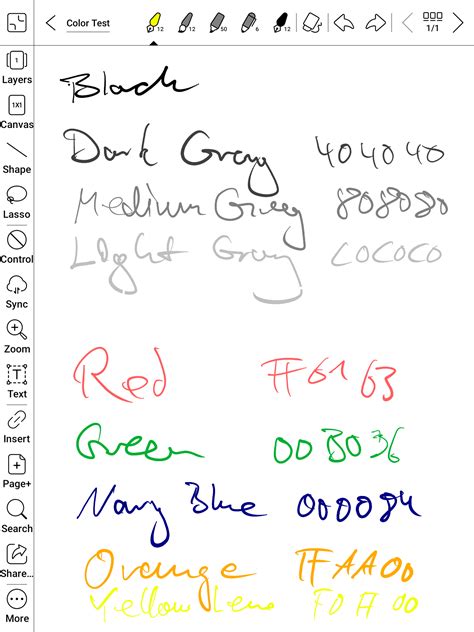 Color Test
12
12
50
6
12
1/1
1
Layers
1X1
Canvas
Shape
Lasso
Control
Sync
Zoom
T
Text
Insert
Page+
Search
Share...
More
Black
Dark Gray 404040
Medium Grey 808080
Light Gray C0C0C0
Red FF6163
Green 00B036
Navy Blue 000084
Orange FFAA00
Yellow